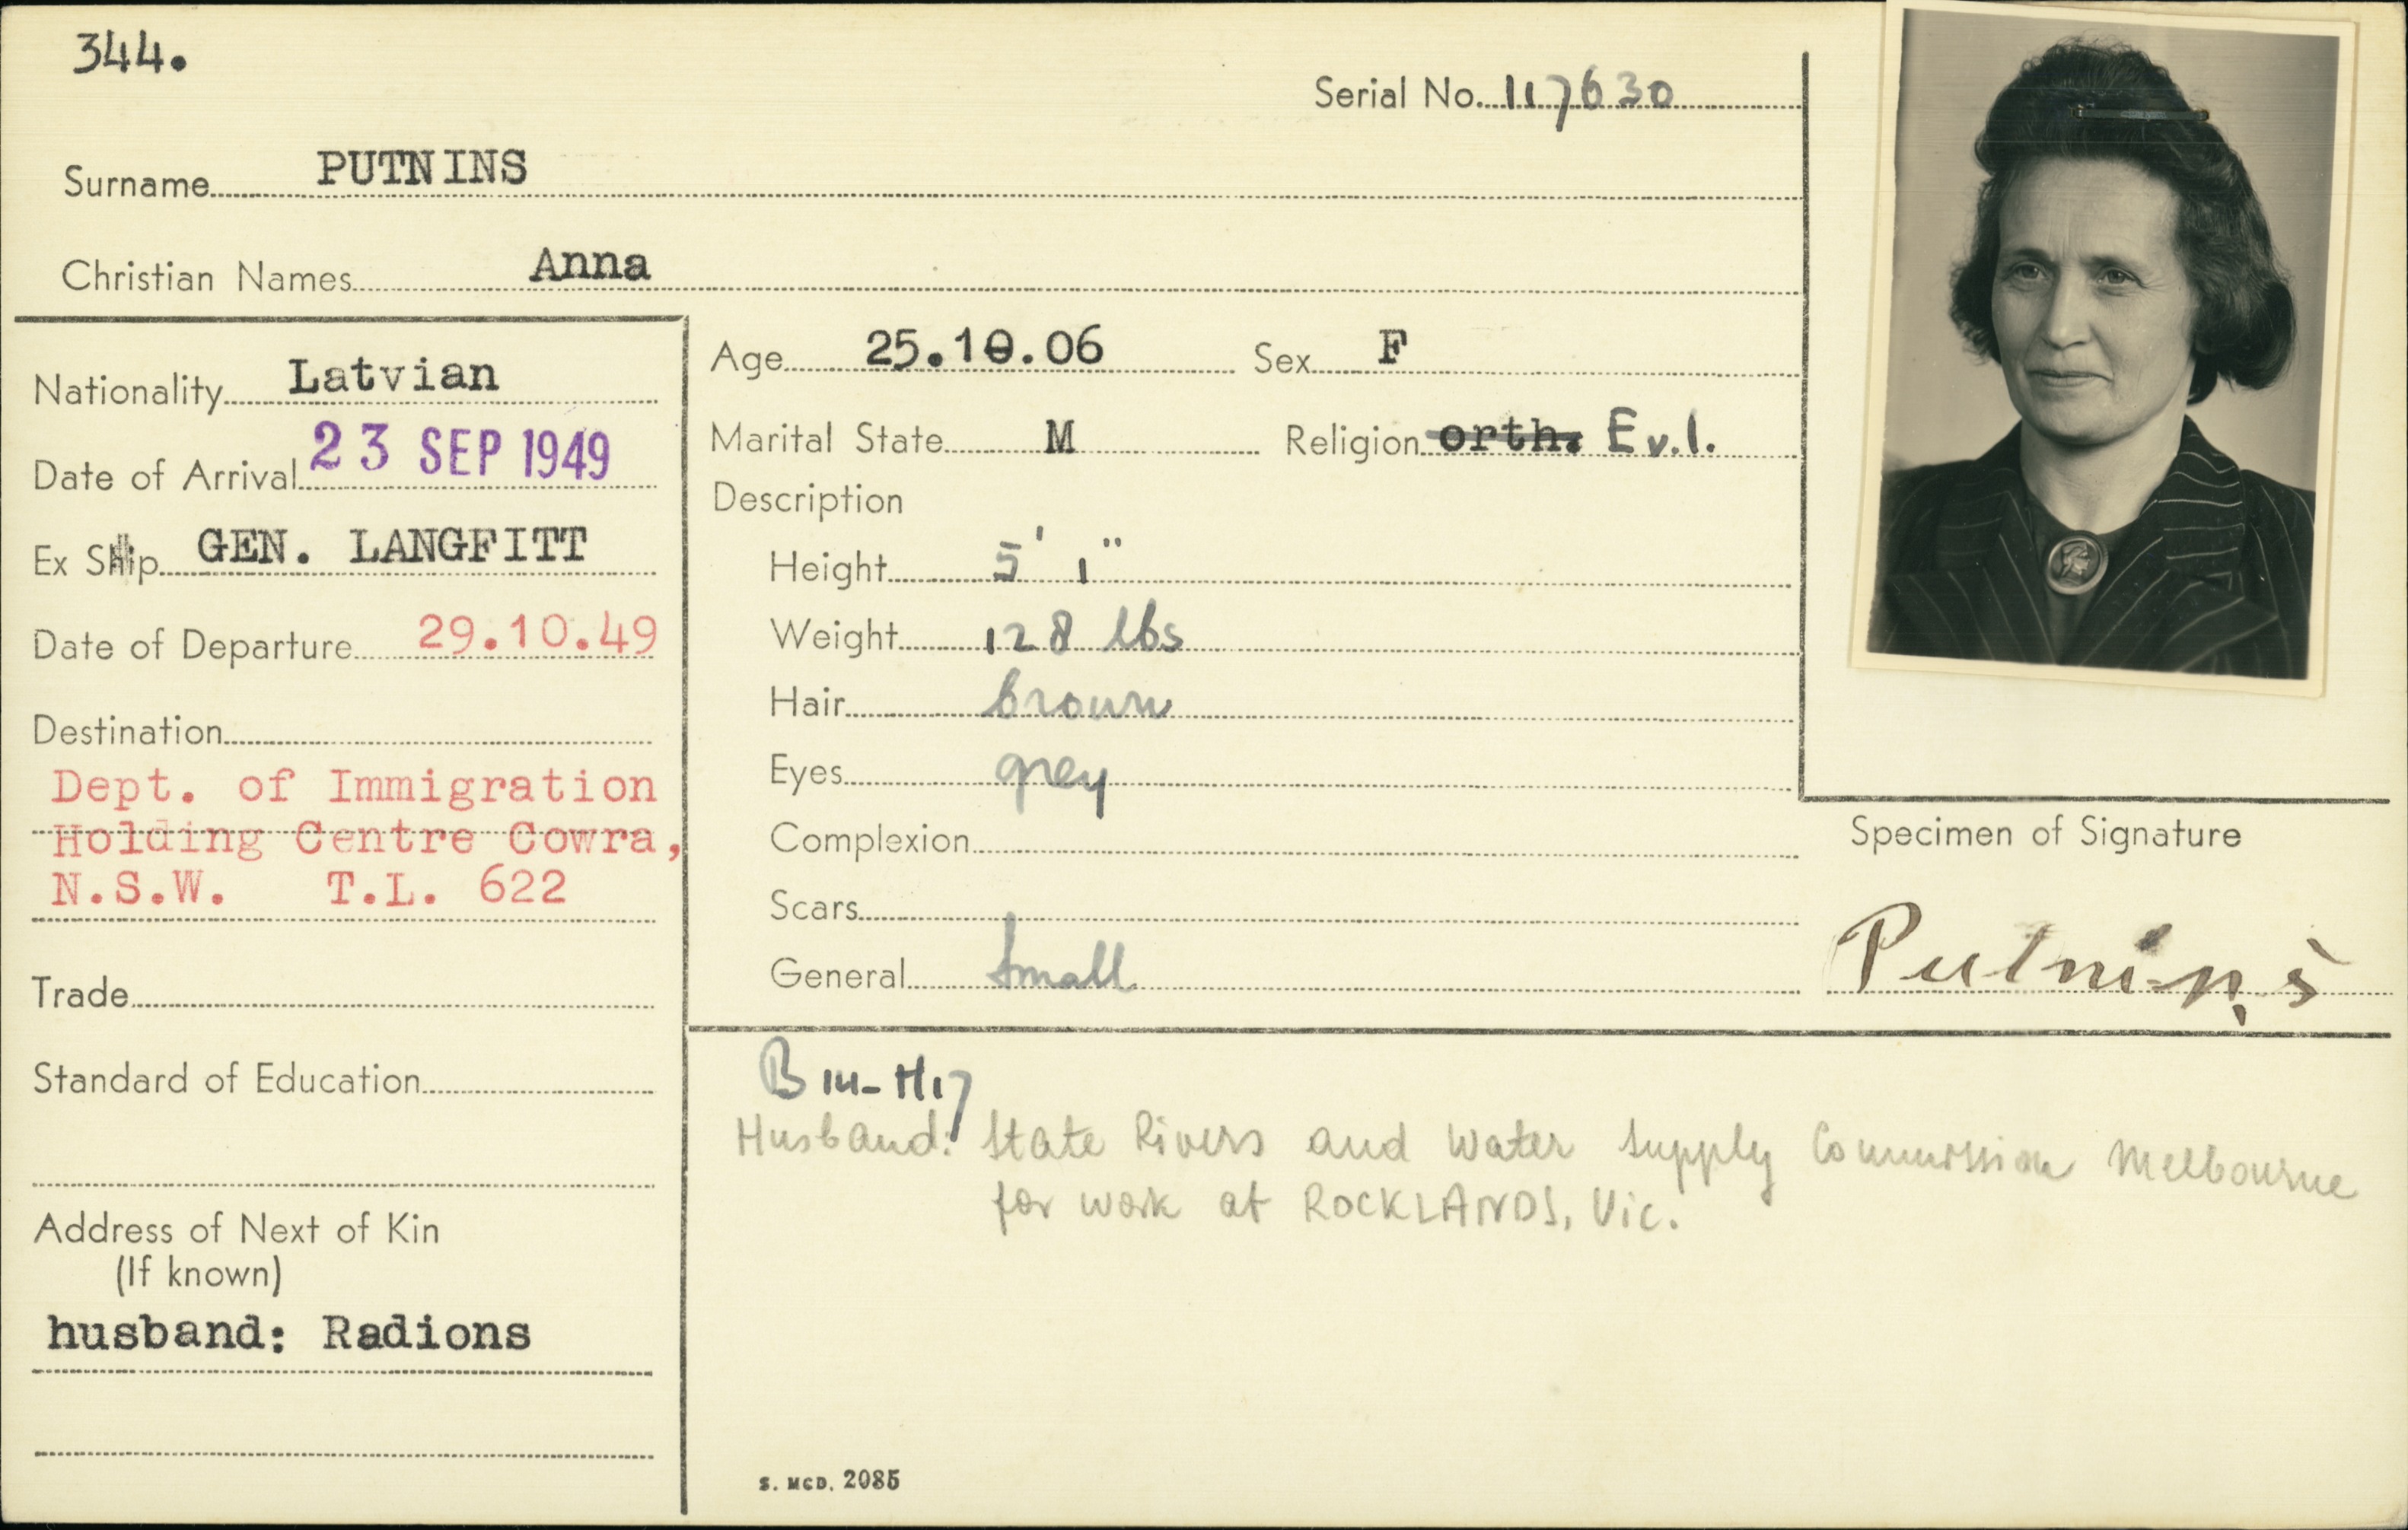 344.
Serial No. 117630
Surname PUTNINS
Christian Names Anna
Nationality Latvian
Date of Arrival 23 SEP 1949
Ex Ship GEN. LANGFITT
Date of Departure 29.10.49
Destination
Dept. of Immigration
Holding Centre Cowra,
N.S.W. T.L. 622
Trade
Standard of Education
Address of Next of Kin
(If known)
husband: Radions
Age 25.10.06 Sex F
Marital State M Religion orth. Ev.l.
Description
Height 5' 1"
Weight 128 lbs
Hair brown
Eyes grey
Complexion
Scars
General Small
Specimen of Signature
Putniņš
B 14-H17
Husband: State Rivers and Water Supply Commission Melbourne
for work at ROCKLANDS, Vic.
S. MCD. 2085